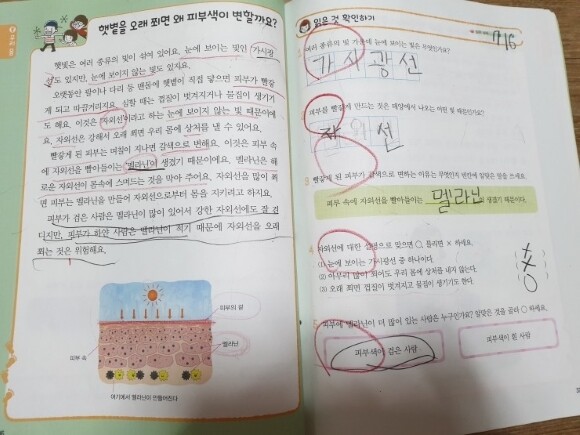 햇볕을 오래 쬐면 왜 피부색이 변할까요?
햇빛은 여러 종류의 빛이 섞여 있어요. 눈에 보이는 빛인 가시광
선도 있지만, 눈에 보이지 않는 빛도 있지요.
오랫동안 팔이나 다리 등 맨몸에 햇볕이 직접 닿으면 피부가 빨갛
게 되고 따끔거리지요. 심할 때는 껍질이 벗겨지거나 물집이 생기기
도 해요. 이것은 자외선이라고 하는 눈에 보이지 않는 빛 때문이에
요. 자외선은 강해서 오래 쬐면 우리 몸에 상처를 낼 수 있어요.
빨갛게 된 피부는 며칠이 지나면 갈색으로 변해요. 이것은 피부 속
에 자외선을 빨아들이는 멜라닌이 생겼기 때문이에요. 멜라닌은 해
로운 자외선이 몸속에 스며드는 것을 막아 주어요. 자외선을 많이 쬐
면 피부는 멜라닌을 만들어 자외선으로부터 몸을 지키려고 하지요.
피부가 검은 사람은 멜라닌이 많이 있어서 강한 자외선에도 잘 견
디지만, 피부가 하얀 사람은 멜라닌이 적기 때문에 자외선을 오래
쬐는 것은 위험해요.
피부의 겉
피부 속
멜라닌
여기에서 멜라닌이 만들어진다
읽은 것 확인하기
7/16
여러 종류의 빛 가운데 눈에 보이는 빛은 무엇인가요?
가시광선
피부를 빨갛게 만드는 것은 태양에서 나오는 어떤 빛 때문인가요?
자외선
3 빨갛게 된 피부가 갈색으로 변하는 이유는 무엇인지 빈칸에 알맞은 말을 쓰세요.
피부 속에 자외선을 빨아들이는 멜라닌이 생겼기 때문이다.
4 자외선에 대한 설명으로 맞으면 ○, 틀리면 × 하세요.
(1) 눈에 보이는 가시광선 중 하나이다. X
(2) 아무리 많이 쬐어도 우리 몸에 상처를 내지 않는다. X
(3) 오래 쬐면 껍질이 벗겨지고 물집이 생기기도 한다. O
5 피부에 멜라닌이 더 많이 있는 사람은 누구인가요? 알맞은 것을 골라 ○ 하세요.
피부색이 검은 사람
피부색이 흰 사람